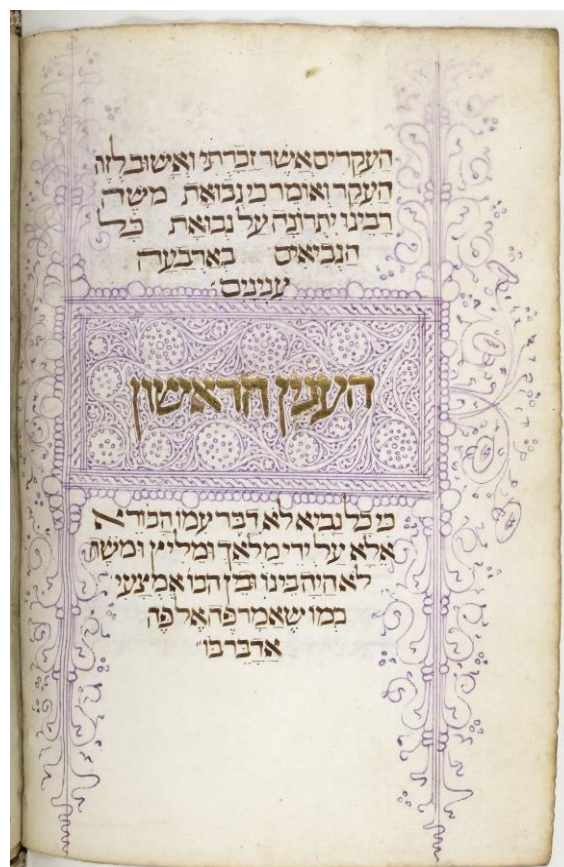 העקרים אשר זכרתי ואשוב לזה
העקר ואומר כי נבואת משה
רבינו יתרונה על נבואת כל
הנביאים בארבעה
ענינים
הענין הראשון
כי כל נביא לא דבר עמו הבורא
אלא על ידי מלאך ומליץ ומשה
לא היה בינו ובין הבו אמצעי
כמו שאמר פה אל פה
אדבר בו